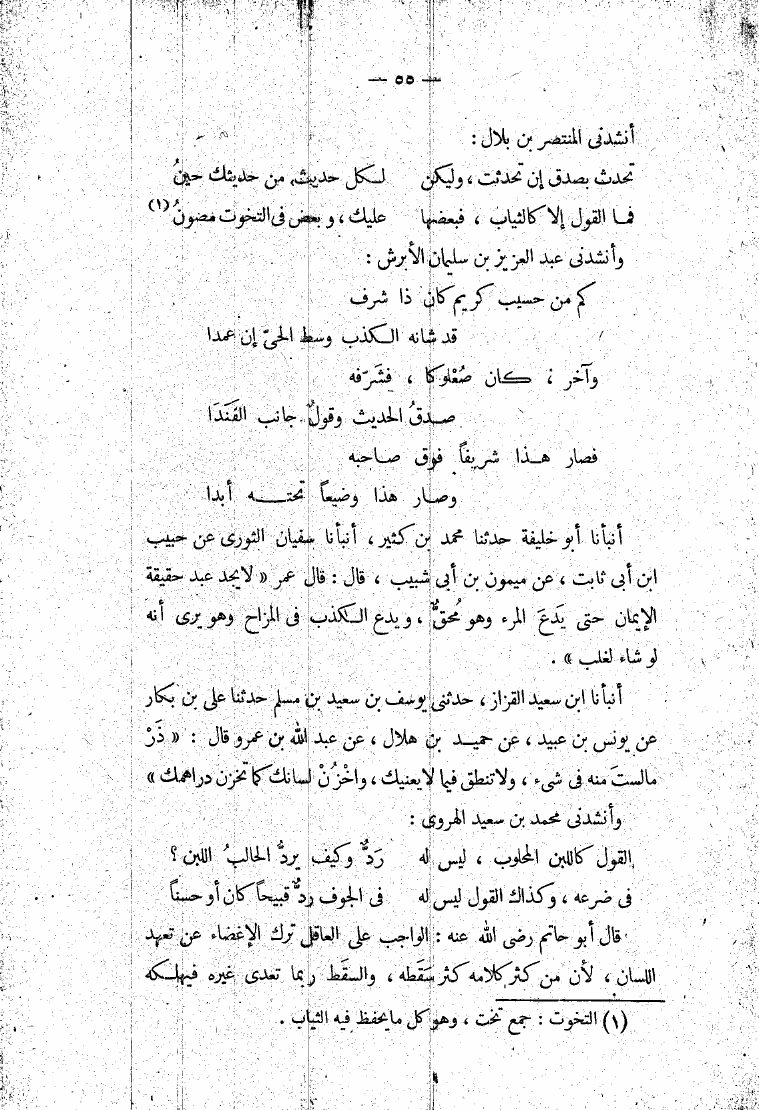 — ٥٥ —
أنشدنى المنتصر بن بلال :
تحدث بصدق إن تحدثت ، وليكن لكل حديث من حديثك حينُ
فما القول إلا كالثياب ، فبعضها عليك ، وبعض فى التخوت مصونُ (١)
وأنشدنى عبد العزيز بن سليمان الأبرش :
كم من حسيب كريم كان ذا شرف
قد شانه الكذب وسط الحىّ إن عمدا
وآخر ؛ كان صُعْلوكا ، فشَرّفه
صدقُ الحديث وقولٌ جانب الفَنَدَا
فصار هذا شريفاً فوق صاحبه
وصار هذا وضيعاً تحته أبدا
أنبأنا أبو خليفة حدثنا محمد بن كثير ، أنبأنا سفيان الثورى عن حبيب
ابن أبى ثابت ، عن ميمون بن أبى شبيب ، قال : قال عمر « لا يجد عبد حقيقة
الإيمان حتى يَدَعَ المرء وهو مُحقٌّ ، ويدع الكذب فى المزاح وهو يرى أنه
لو شاء لغلب » .
أنبأنا ابن سعيد القزاز ، حدثنى يوسف بن سعيد بن مسلم حدثنا على بن بكار
عن يونس بن عبيد ، عن حميد بن هلال ، عن عبد الله بن عمرو قال : « ذَرْ
مالستَ منه فى شىء ، ولا تنطق فيما لا يعنيك ، واخْزُنْ لسانك كما تخزن دراهمك »
وأنشدنى محمد بن سعيد الهروى :
القول كاللبن المحلوب ، ليس له رَدٌّ وكيف يردُّ الحالبُ اللبن ؟
فى ضرعه ، وكذاك القول ليس له فى الجوف ردٌّ قبيحاً كان أو حسناً
قال أبو حاتم رضى الله عنه : الواجب على العاقل ترك الإغضاء عن تعهد
اللسان ، لأن من كثر كلامه كثر سَقَطه ، والسقَط ربما تعدى غيره فيهلكه
(١) التخوت : جمع تخت ، وهو كل ما يحفظ فيه الثياب .